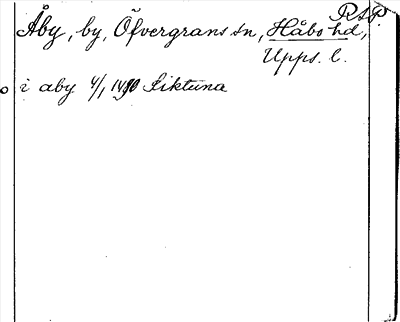 RSP
Åby, by, Öfvergrans sn, Håbo hd,
Upps. l.
i aby 4/1 1490 Siktuna